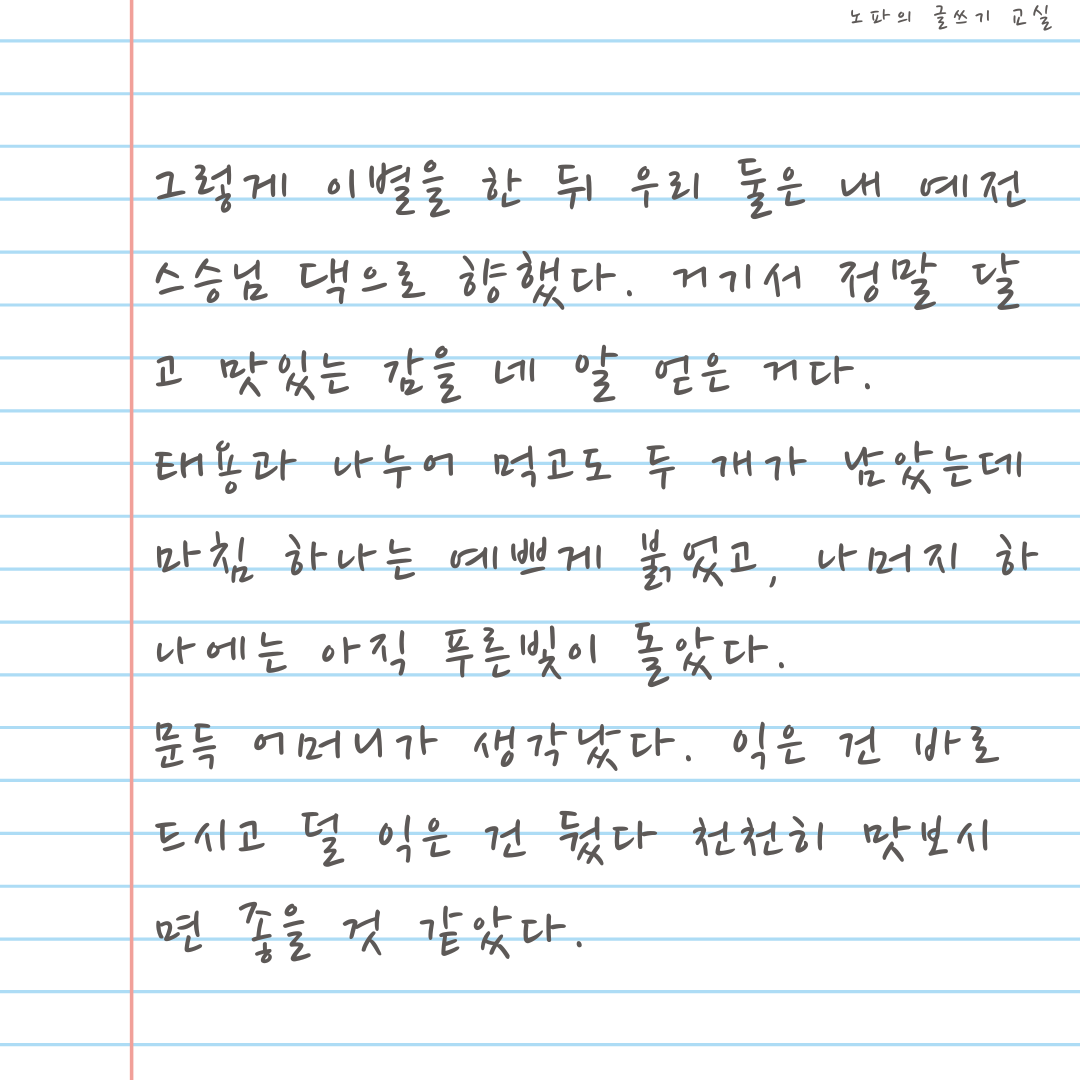 노파의 글쓰기 교실
그렇게 이별을 한 뒤 우리 둘은 내 예전
스승님 댁으로 향했다. 거기서 정말 달
고 맛있는 감을 네 알 얻은 거다.
태용과 나누어 먹고도 두 개가 남았는데
마침 하나는 예쁘게 붉었고, 나머지 하
나에는 아직 푸른빛이 돌았다.
문득 어머니가 생각났다. 익은 건 바로
드시고 덜 익은 건 뒀다 천천히 맛보시
면 좋을 것 같았다.